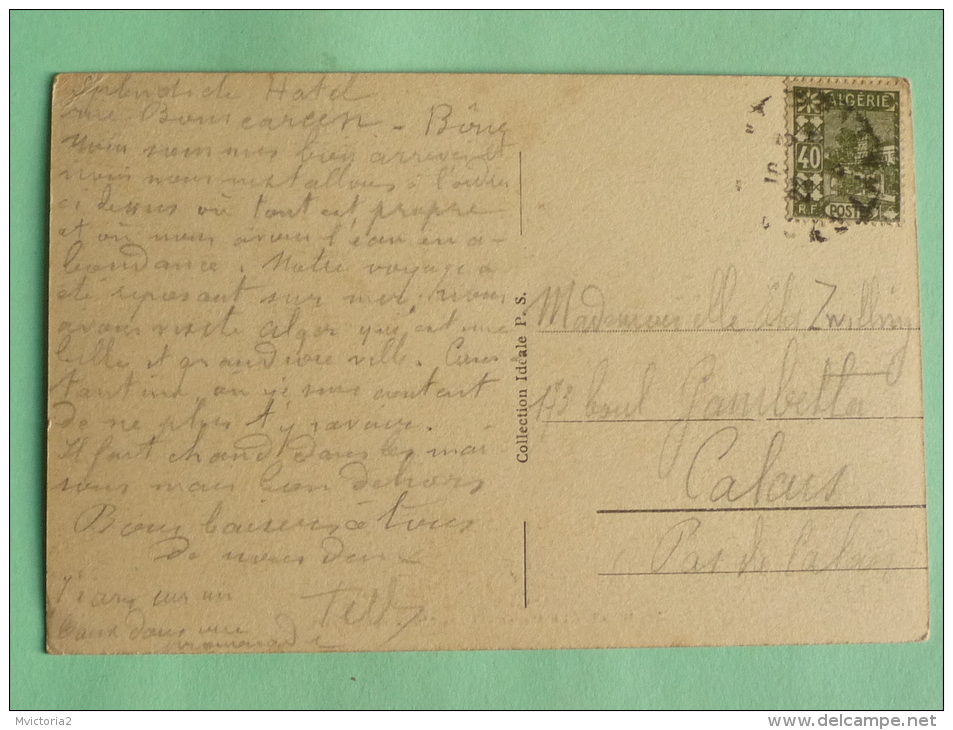 Splendide Hotel
rue Bouscaren - Bône
Nous sommes bien arrivées et
nous nous installons à l'
ci dessus où tout est propre
et où nous avons l'eau en a-
bondance. Notre voyage a
été reposant sur mer. Nous
avons visité Alger qui est une
belle et grandiose ville. Cons-
tantine, où je suis
de ne plus t'y
Il fait chaud dans les mai-
sons mais bon dehors
Bons baisers à tous
de nous deux
J'écris sur un
banc dans une
promenade
Tilly
ALGÉRIE
40
R.F. POSTES
Collection Idéale P. S.
Mademoiselle Zwilling
173 boul Gambetta
Calais
Pas de Calais
Mvictoria2
http://www.delcampe.net